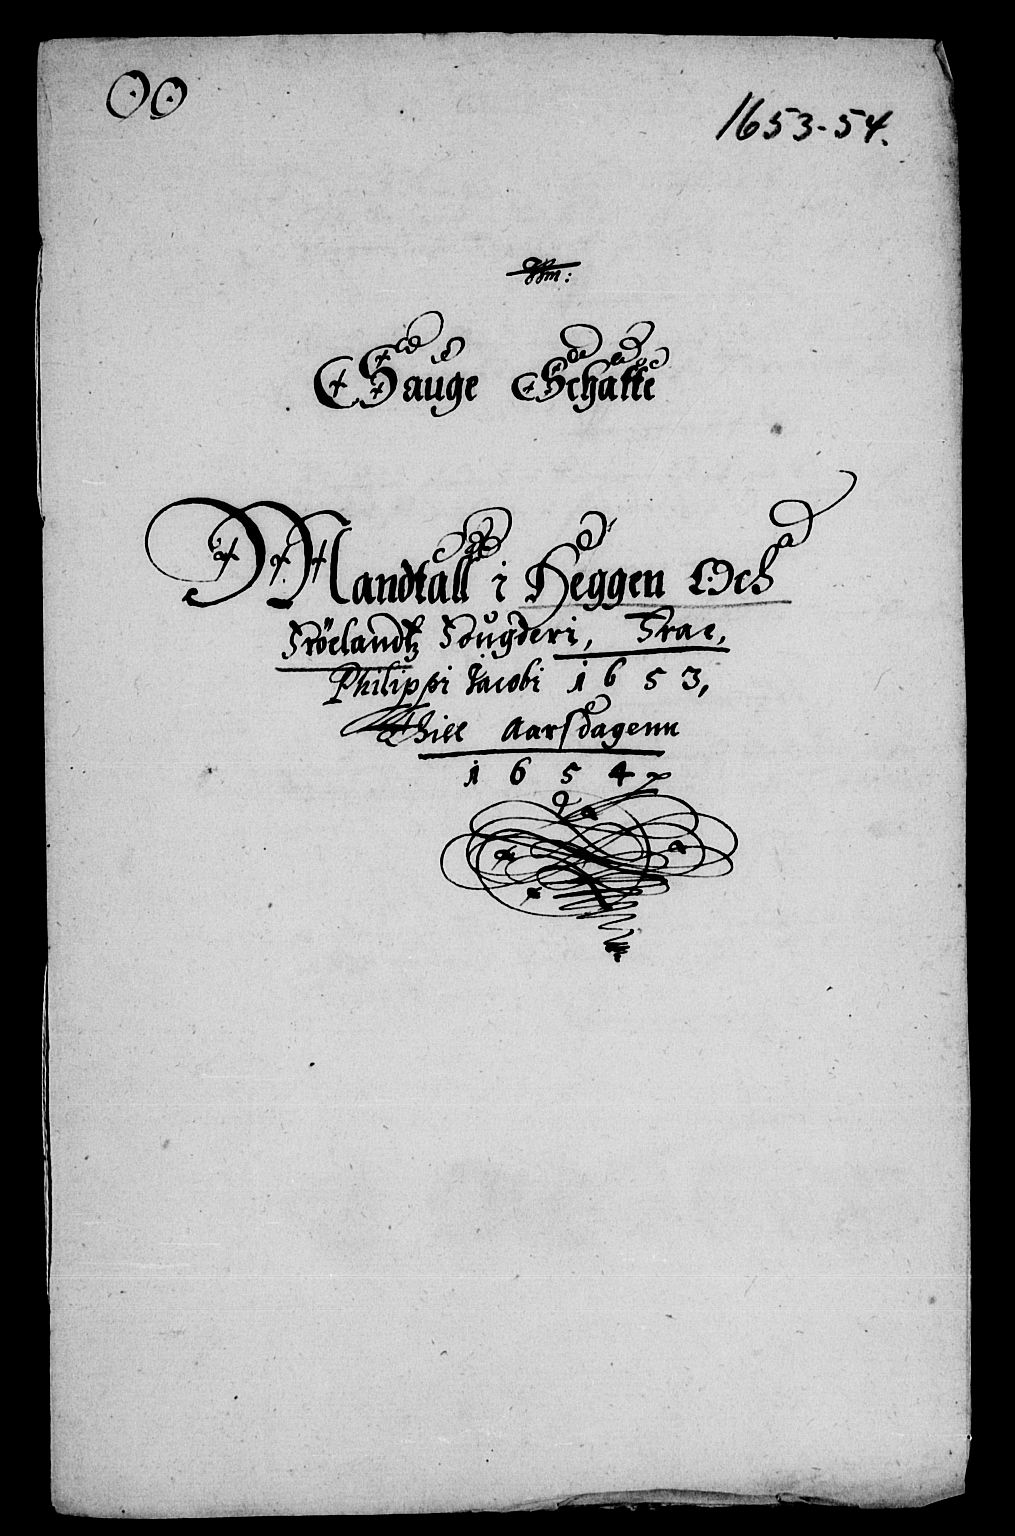 OO
1653-54.
Sauge Schatte
Mandtall i Heggen Och
Frölandtz Fougderi, Fraae,
Philippi Jacobi 1653,
Thill Aarsdagenn
1654